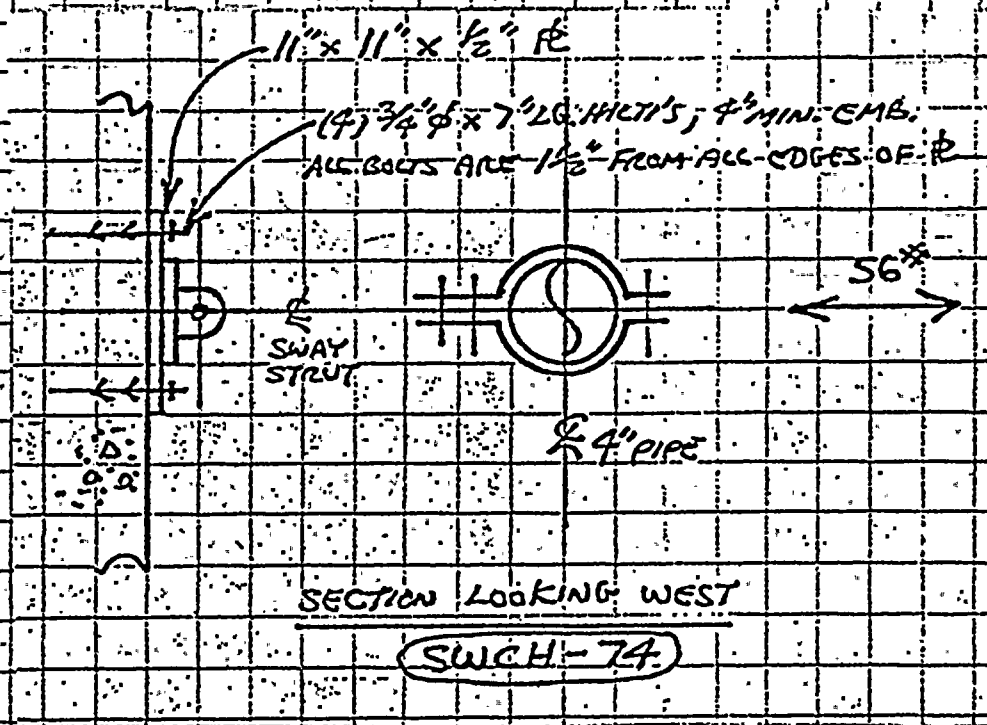 11" x 11" x 1/2" ⅊
(4) 3/4"φ x 7"LG. HILTI'S; 4" MIN. EMB.
ALL BOLTS ARE 1 1/2" FROM ALL EDGES OF ⅊
56#
℄
SWAY
STRUT
℄ 4" PIPE
SECTION LOOKING WEST
SWCH-74